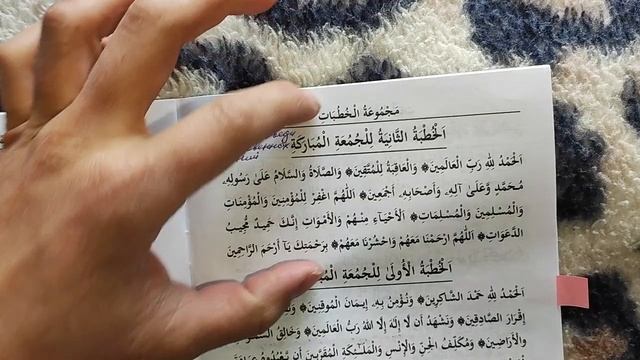 مَجْمُوعَةُ الْخُطُبَاتِ
اَلْخُطْبَةُ الثَّانِيَةُ لِلْجُمُعَةِ الْمُبَارَكَةِ
اَلْحَمْدُ لِلّٰهِ رَبِّ الْعَالَمِينَ۞ وَالْعَاقِبَةُ لِلْمُتَّقِينَ۞ وَالصَّلَاةُ وَالسَّلَامُ عَلَى رَسُولِهِ
مُحَمَّدٍ وَّعَلَى آلِهِ وَأَصْحَابِهِ أَجْمَعِينَ۞ اَللّٰهُمَّ اغْفِرْ لِلْمُؤْمِنِينَ وَالْمُؤْمِنَاتِ
وَالْمُسْلِمِينَ وَالْمُسْلِمَاتِ۞ اَلْأَحْيَآءِ مِنْهُمْ وَالْأَمْوَاتِ إِنَّكَ حَمِيدٌ مُّجِيبُ
الدَّعَوَاتِ۞ اَللّٰهُمَّ ارْحَمْنَا مَعَهُمْ وَاحْشُرْنَا مَعَهُمْ۞ بِرَحْمَتِكَ يَآ أَرْحَمَ الرَّاحِمِينَ
اَلْخُطْبَةُ الْأُولَى لِلْجُمُعَةِ
اَلْحَمْدُ لِلّٰهِ حَمْدَ الشَّاكِرِينَ۞ وَنُؤْمِنُ بِهِ إِيمَانَ الْمُوقِنِينَ۞
إِقْرَارَ الصَّادِقِينَ۞ وَنَشْهَدُ أَنْ لَا إِلٰهَ إِلَّا اللهُ رَبُّ الْعَالَمِينَ۞ وَخَالِقُ
وَالْأَرَاضِينَ۞ وَمُكَلِّفُ الْجِنِّ وَالْإِنْسِ وَالْمَلَٓئِكَةِ الْمُقَرَّبِينَ أَنْ